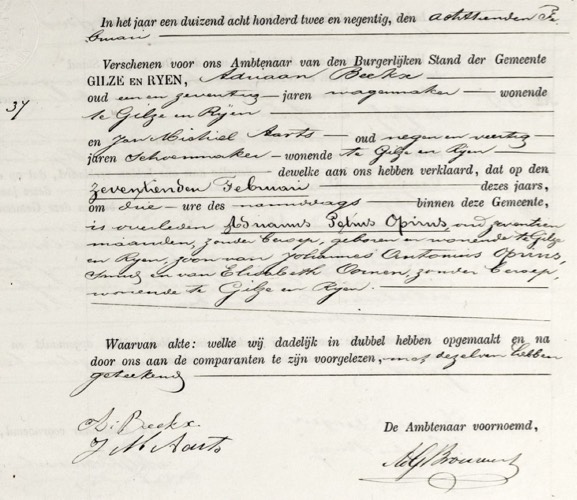 In het jaar een duizend acht honderd twee en negentig, den achttienden Fe
bruari
Verschenen voor ons Ambtenaar van den Burgerlijken Stand der Gemeente
GILZE EN RYEN, Adriaan Beekx
37
oud een en zeventig jaren wagenmaker wonende
te Gilze en Rijen
en Jan Michiel Aarts oud negen en veertig
jaren Schoenmaker wonende te Gilze en Rijen
dewelke aan ons hebben verklaard, dat op den
zeventienden Februari dezes jaars,
om drie ure des namiddags binnen deze Gemeente,
is overleden Adrianus Petrus Opirus, oud zeventien
maanden, zonder beroep, geboren en wonende te Gilze
en Rijen, zoon van Johannes Antonius Opirus,
Smid en van Elisabeth Oomen, zonder beroep,
wonende te Gilze en Rijen.
Waarvan akte: welke wij dadelijk in dubbel hebben opgemaakt en na
door ons aan de comparanten te zijn voorgelezen, met dezelven hebben
geteekend
A. Beekx
J M Aarts
De Ambtenaar voornoemd,
Brouwers